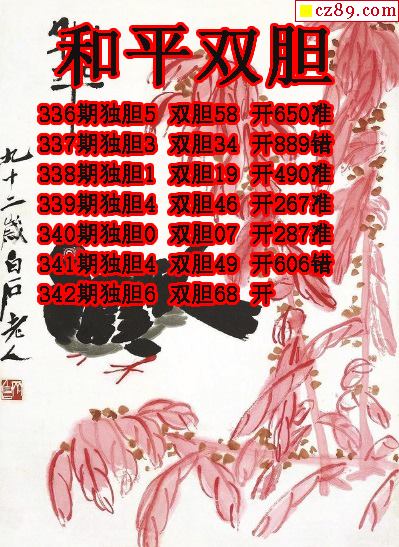 cz89.com
和平双胆
336期独胆5 双胆58 开650准
337期独胆3 双胆34 开889错
338期独胆1 双胆19 开490准
339期独胆4 双胆46 开267准
340期独胆0 双胆07 开287准
341期独胆4 双胆49 开606错
342期独胆6 双胆68 开
九十二岁白石老人